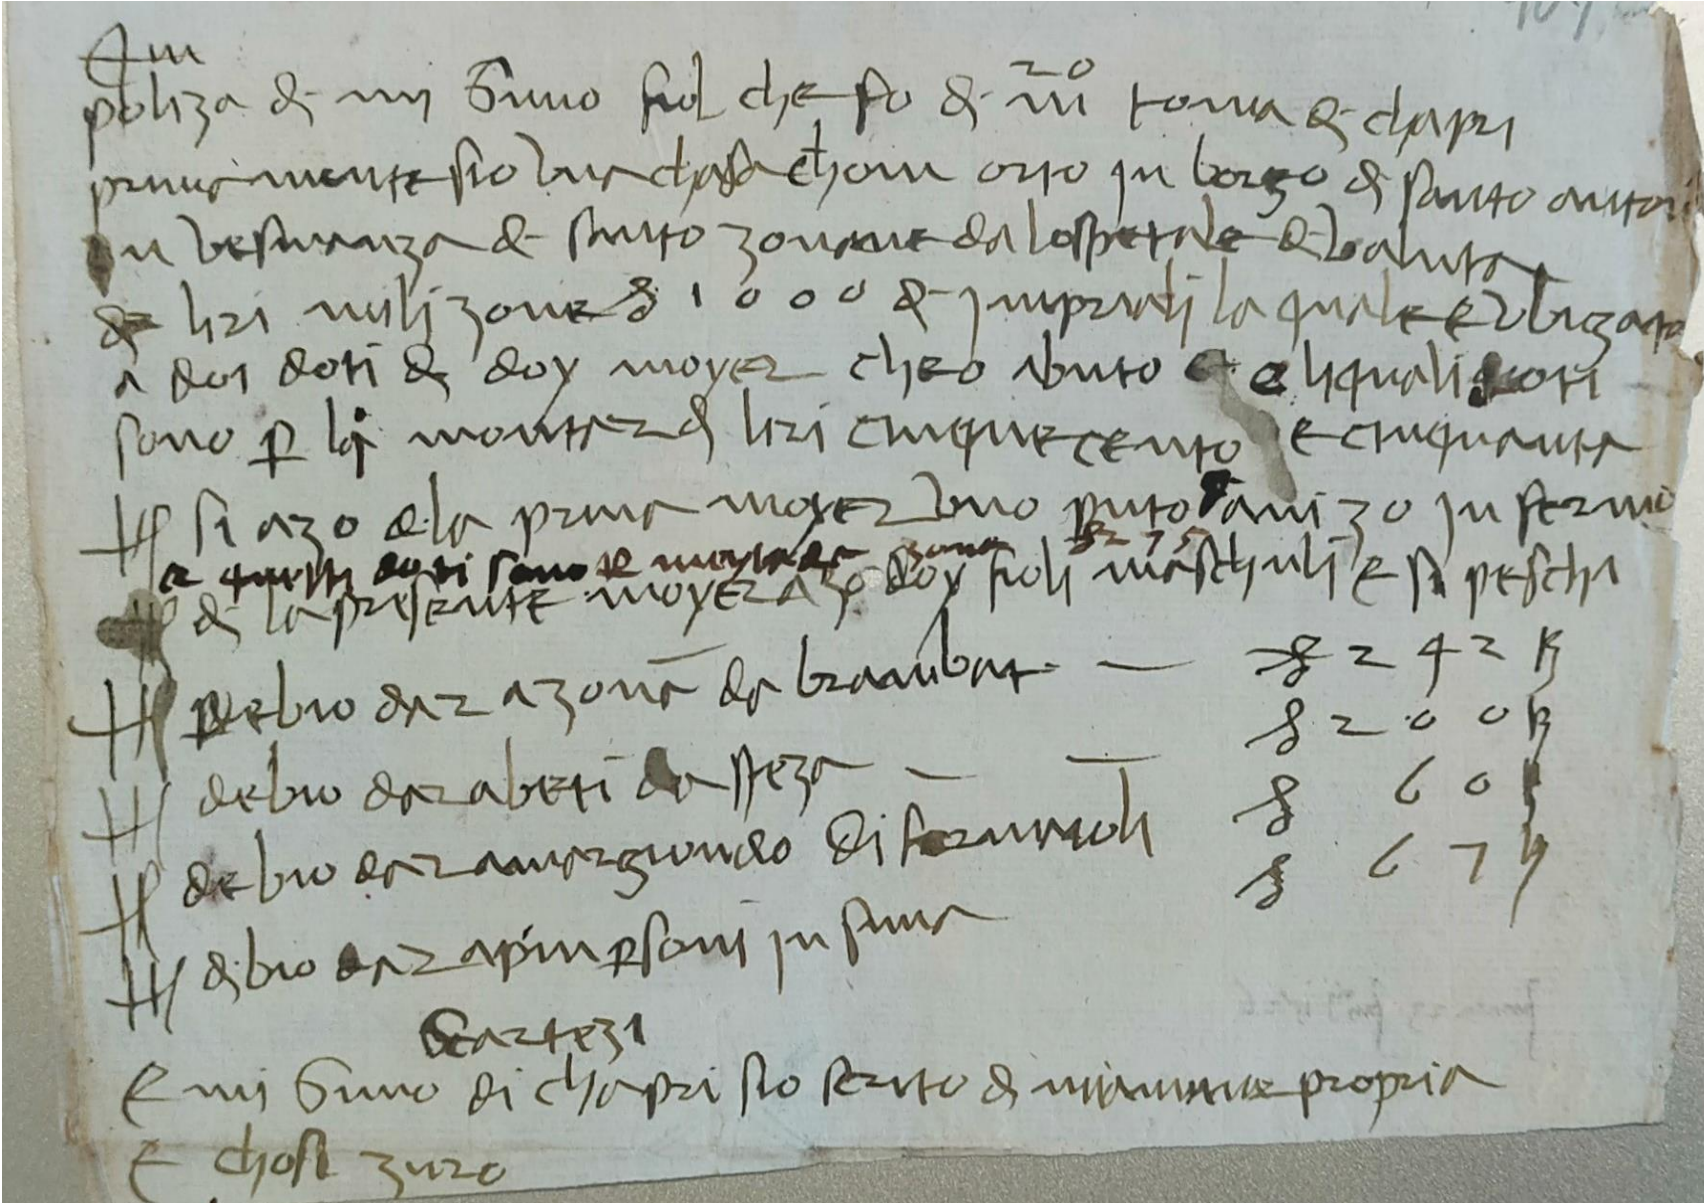 poliza de mi Simo fiol che fo de m ro toma de chapri
primamente sio una chasa chom orto in borgo de santo antoni
in vesinanza de santo zouane da lospetale de valuta
de liri mili zone 1000 de inpriali la quale e obligata
a doi doti de doy moyer che o abuto e liquali doti
sono p montar de liri cinquecento e cinquanta
si azo de la prima moyer uno puto infermo
a questi doti sono p
de la presente moyer azo doy fioli maschuli e si peschi
debio dar a zoua da brambat — 242
debio dar abeti da steza — 200
debio dar amargiondo di 60
debio dar apiu psoni in suma 67
cartezi
E mi Simo di chapri sio scrito de mia mane propria
E chosi zuro